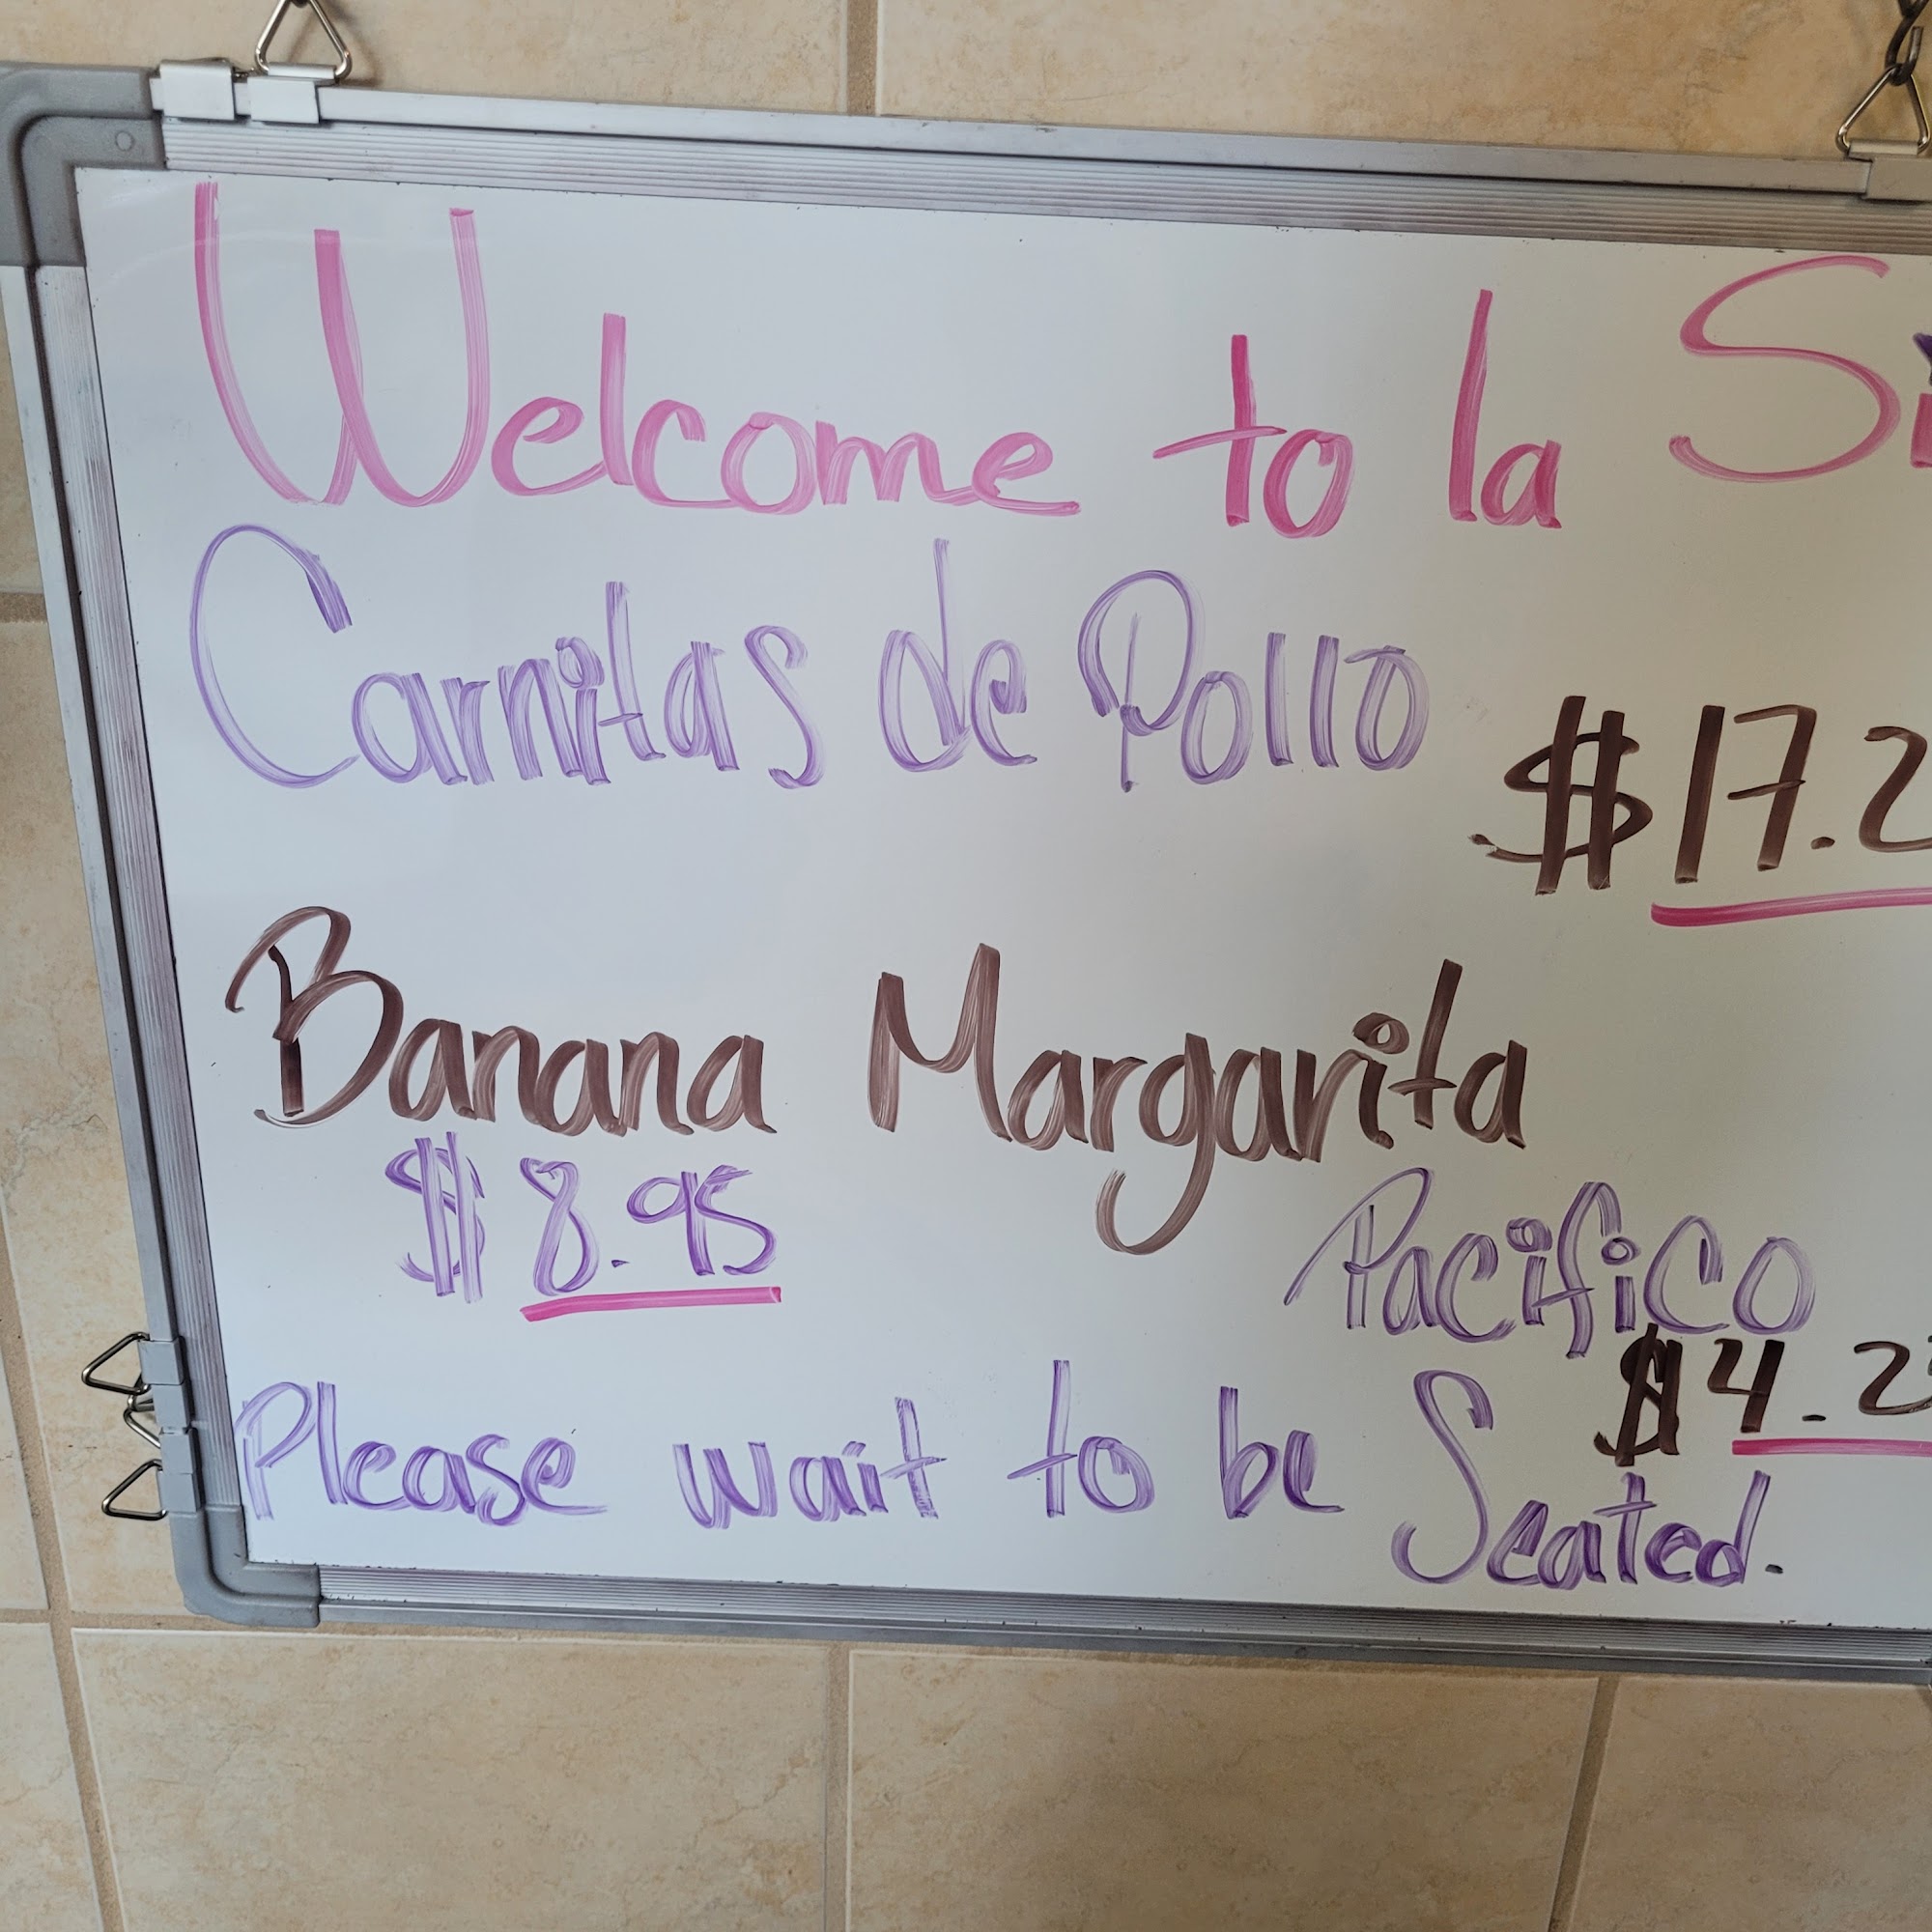 Welcome to la Si
Carnitas de Pollo
$17.2
Banana Margarita
$8.95
Pacifico
$4.2
Please wait to be Seated.